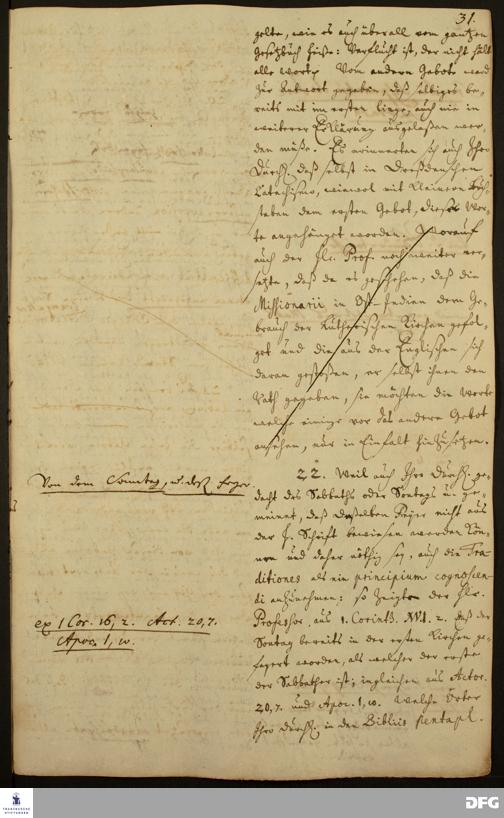 31.
gelte, wie es auch überall vom gantzen
Gesetzbuch heiße: Verflucht ist, der nicht hält
alle worte. Vom andern Gebote ward
zur Antwort gegeben, daß selbiges be-
reits mit im ersten liege, auch nie in
weiterer Erklärung ausgelaßen wer-
den müße. Es erinnerten sich auch Ihro
Durchl. daß selbst in Dreßdenschen
Catechismo, wiewol mit kleinern Buch-
staben dem ersten Gebot, diese Wor-
te angehänget worden. Worauf
auch der Hr. Prof. noch weiter ver-
setzte, daß da es geschehen, daß die
Missionarii in Ost-Indien dem Ge-
brauch der Lutherischen Kirchen gefol-
get und die aus der Englischen sich
daran gestoßen, er selbst ihnen den
Rath gegeben, sie möchten die Worte
welche einige vor das andere Gebot
ansehen, nur in Einfalt hinzusetzen.
Von dem Sonntag, u. deß feyer.
22. Weil auch Ihro Durchl. ge-
dacht des Sabbaths oder Sontags u. ge-
meinet, daß desselben Feyer nicht aus
der H. Schrift bewiesen werden kön-
ne und daher nöthig sey, auch die Tra-
ditiones als ein principium cognoscen-
di anzunehmen; so zeigte der Hr.
Professor, aus 1. Corinth. XVI. 2. daß der
Sontag bereits in der ersten Kirchen ge-
feyert worden, als welcher der erste
der Sabbather ist; ingleichen aus Actor.
20, 7. und Apoc. 1, 10. welche Örter
Ihro Durchl. in den Bibliis pentapl.
ex 1 Cor. 16, 2. Act. 20, 7.
Apoc. 1, 10.
FRANCKESCHE
STIFTUNGEN
DFG